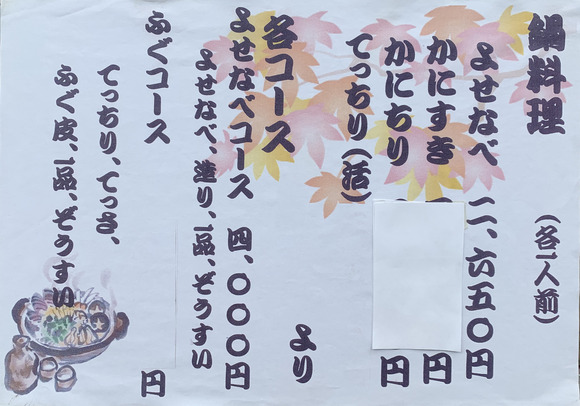 鍋料理　（各1人前）
よせなべ　二、六五〇円
かにすき　円
かにちり　円
てっちり（活）
より
各コース
よせなべコース　四、〇〇〇円
よせなべ、造り、一品、ぞうすい
ふぐコース　円
てっちり、てっさ、
ふぐ皮、一品、ぞうすい